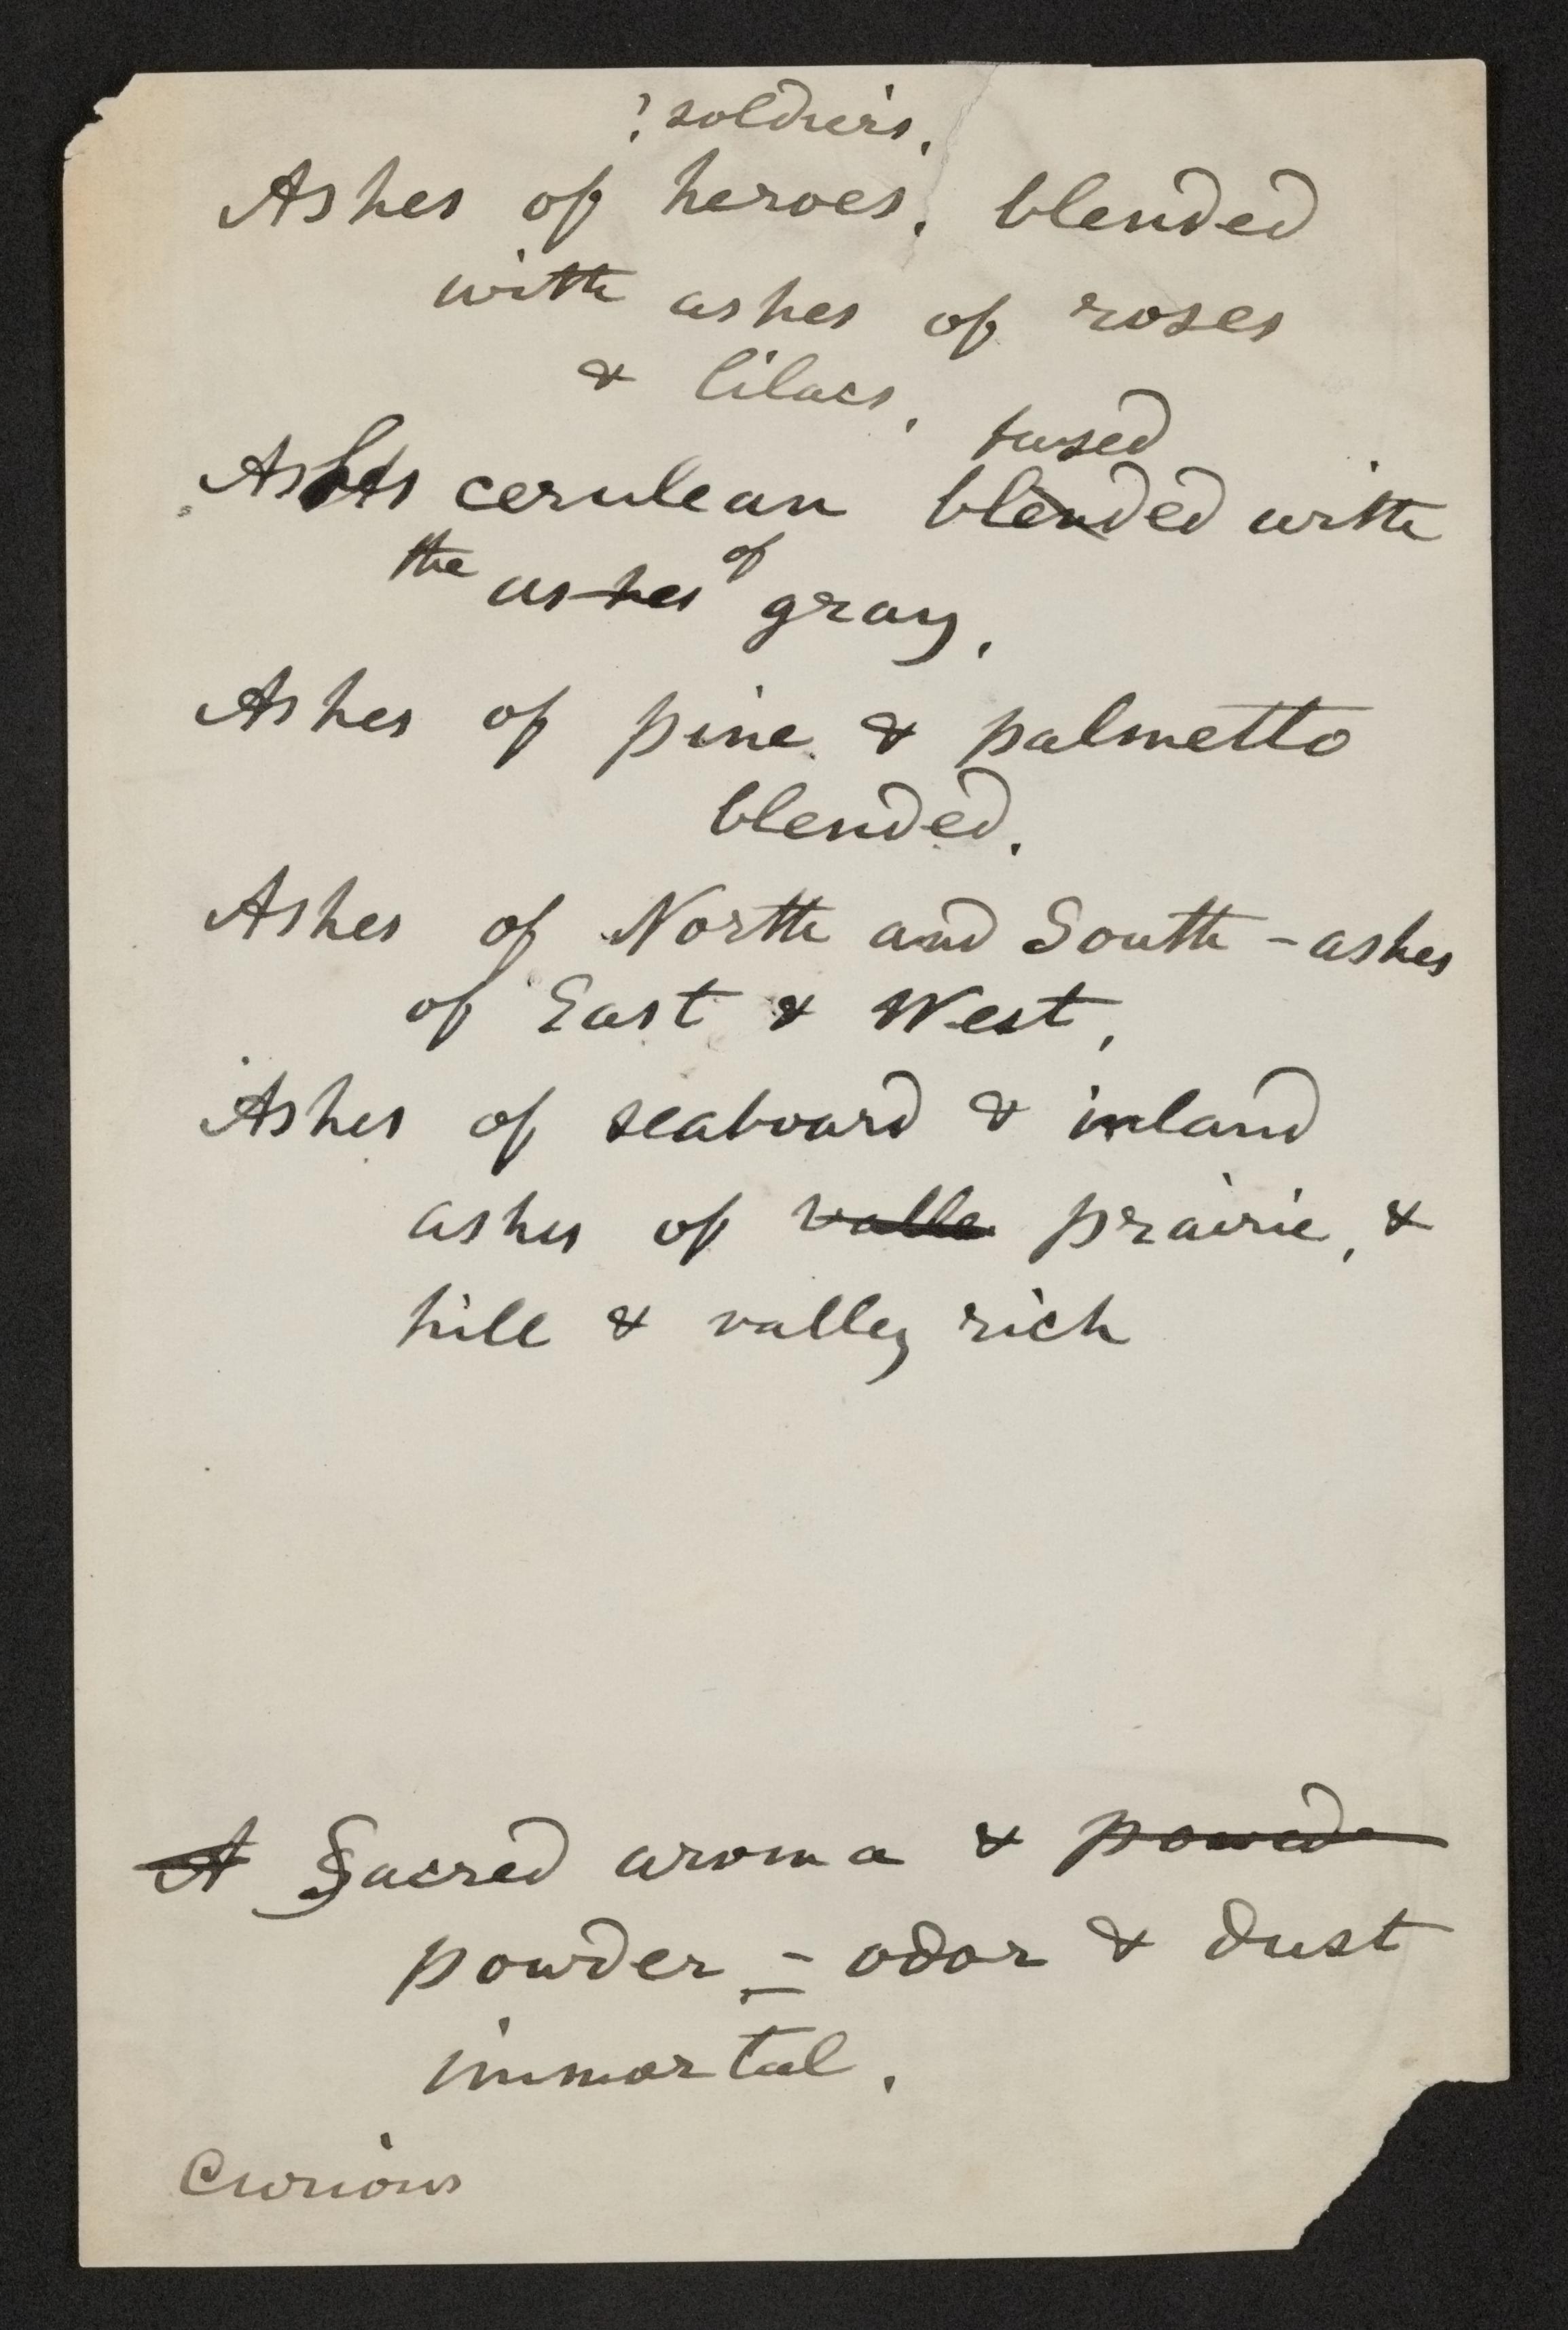 ? soldiers,
Ashes of heroes, blended
with ashes of roses
& lilacs,
fused
Ashes cerulean blended with
the ashes of gray,
Ashes of pine & palmetto
blended,
Ashes of North and South – ashes
of East & West,
Ashes of seaboard & inland
ashes of valle prairie, &
hill & valley rich
A Sacred aroma & powde
powder – odor & dust
immortal.
Curious